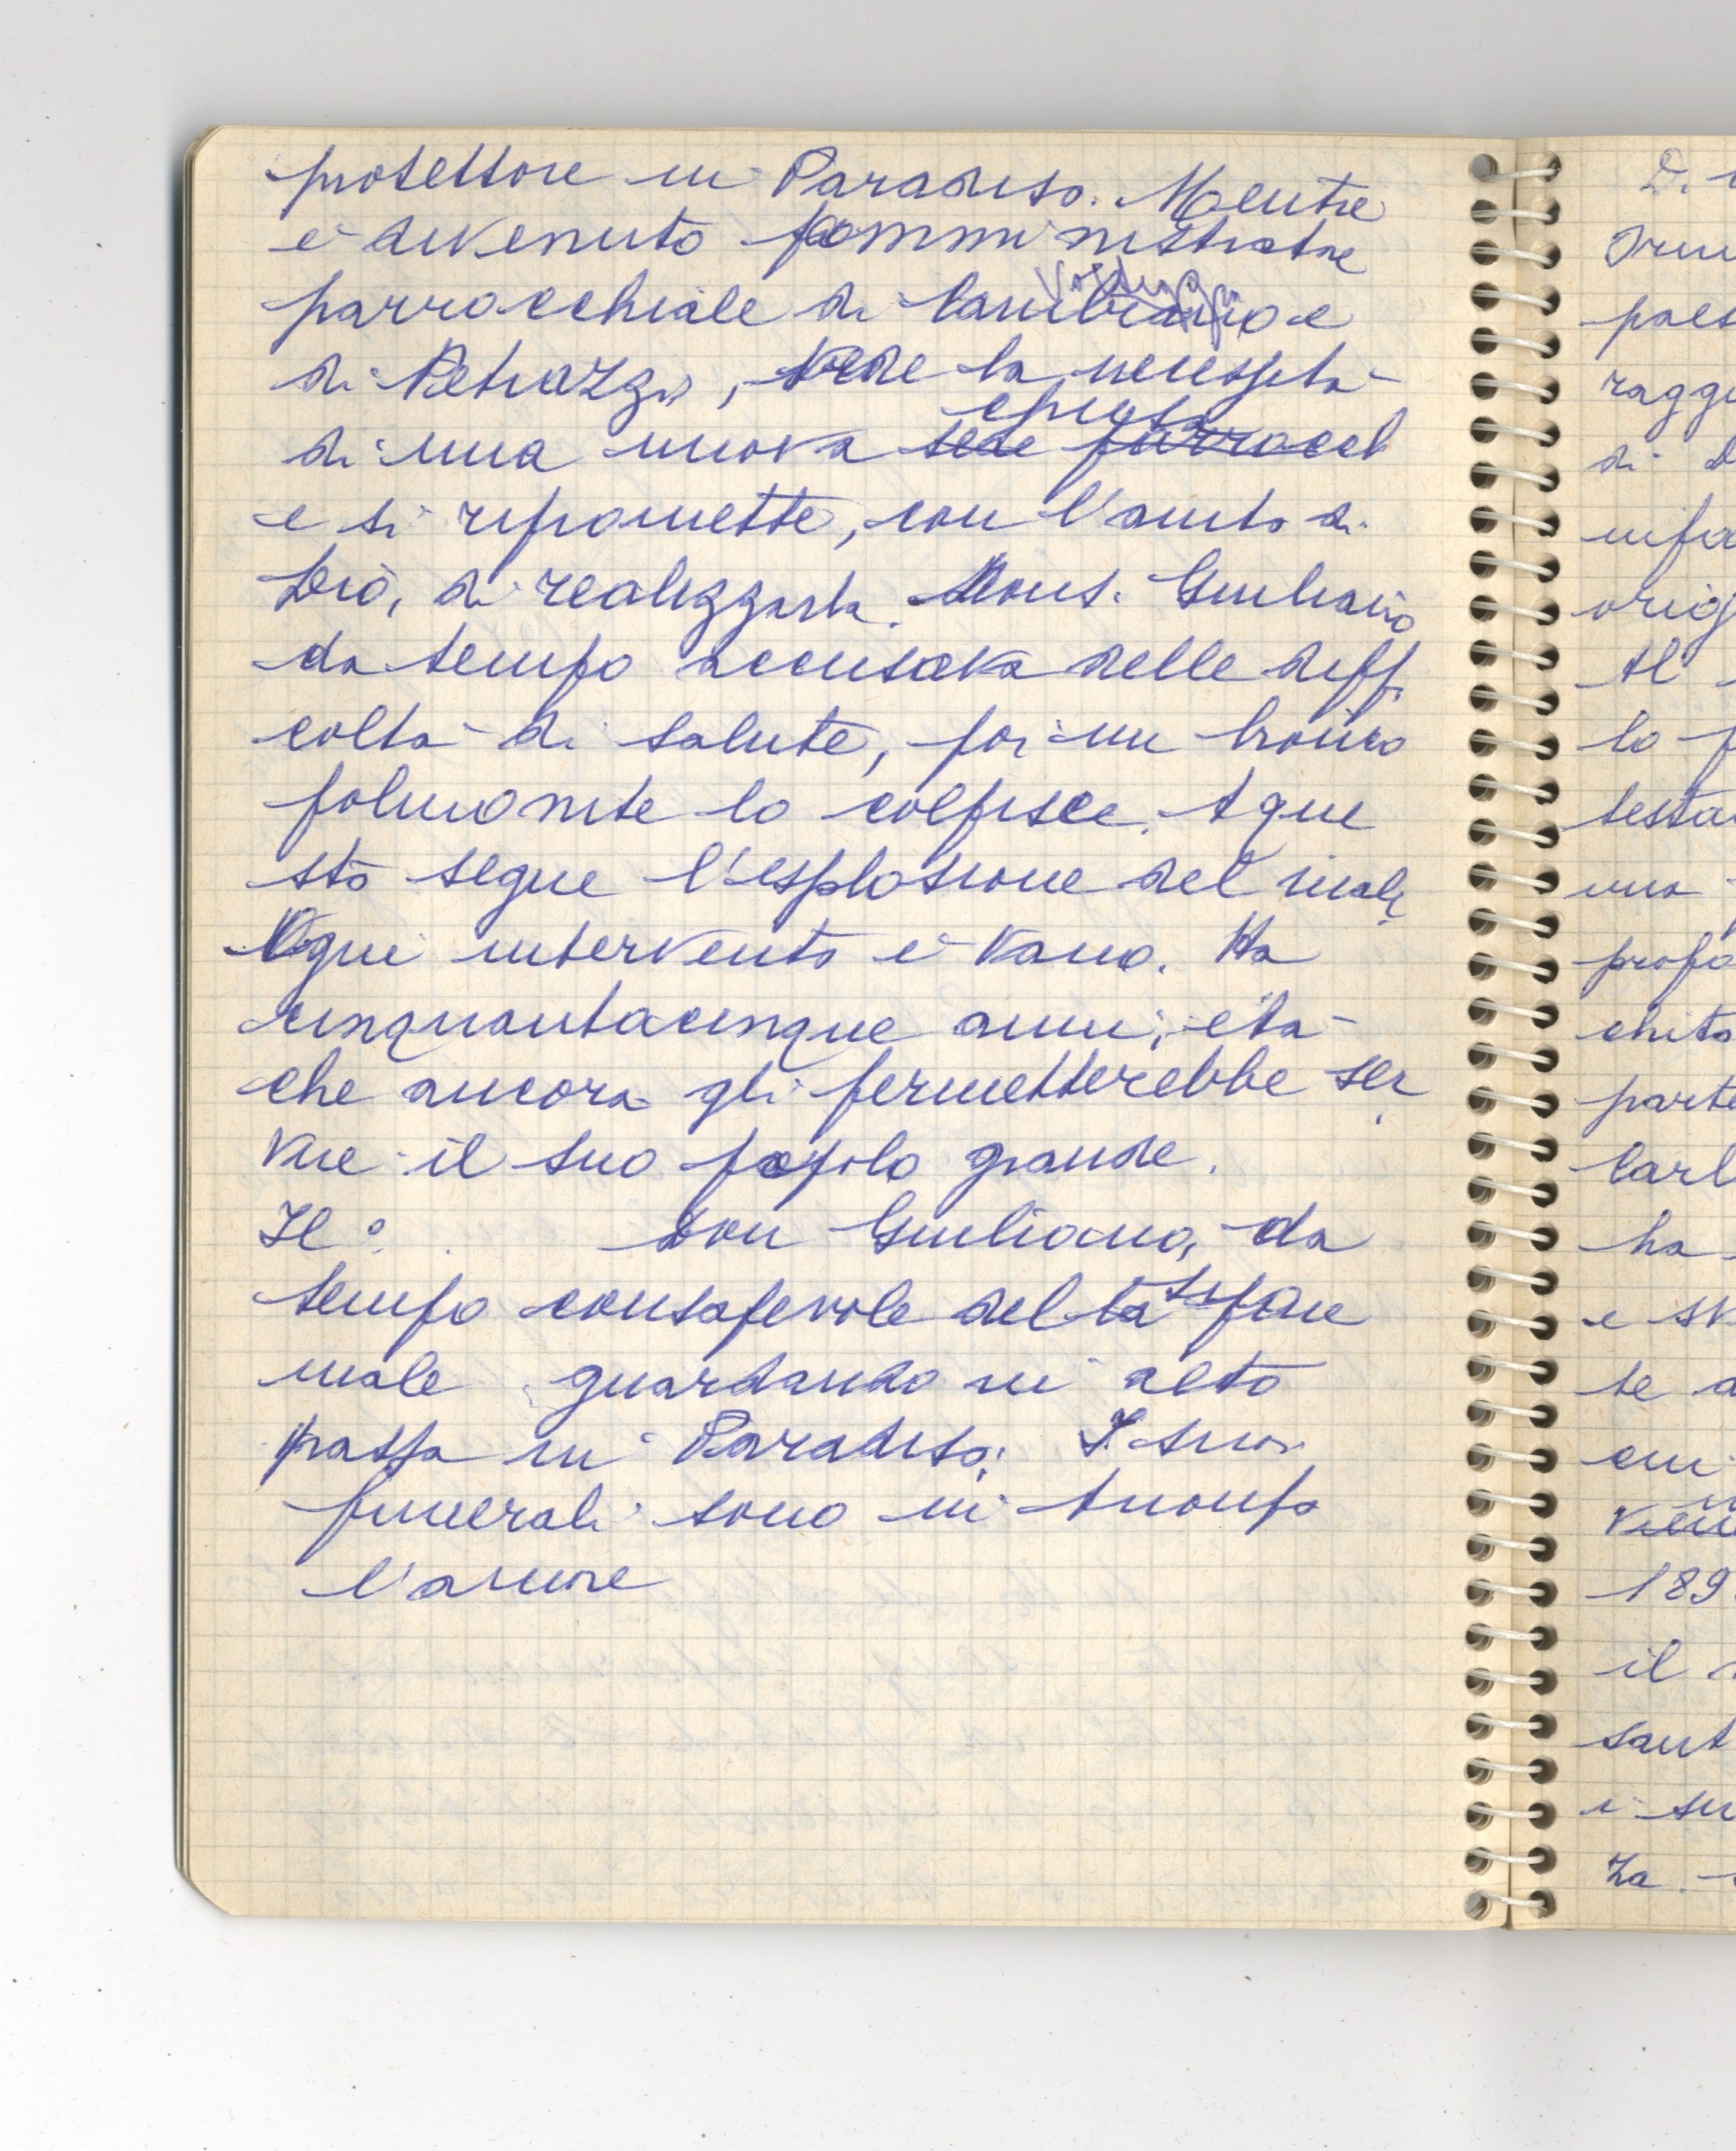 protettore in Paradiso. Mentre
è divenuto amministratore
parrocchiale di Cambiano e
di Petrazzi, vede la necessità
chiesa
di una nuova sede parrocch
e si ripromette, con l'aiuto di
Dio, di realizzarla. Mons. Giuliano
da tempo accusava delle diffi
coltà di salute, poi un bronco
polmonite lo colpisce. A que
sto segue l'esplosione del male,
Ogni intervento è vano. Ha
cinquantacinque anni, età
che ancora gli permetterebbe ser
vire il suo popolo grande.
Il: Don Giuliano, da
tempo consapevole del la suo
male guardando in alto
passa in Paradiso. I suoi
funerali sono in trionfo
l'amore
D.
paes
ragg
di D
orig
Al
lo p
testa
una
profo
chito
parte
Carl
ha
e sv
te a
cui
189
il
sant
i su
za